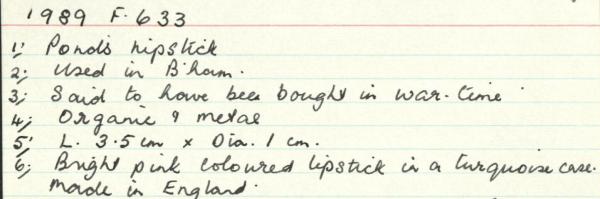 1989 F. 633
1; Pond's Lipstick
2; Used in B'ham.
3; Said to have been bought in war-time
4; Organic & metal
5; L. 3.5 cm x Dia. 1 cm.
6; Bright pink coloured lipstick in a turquoise case.
Made in England.